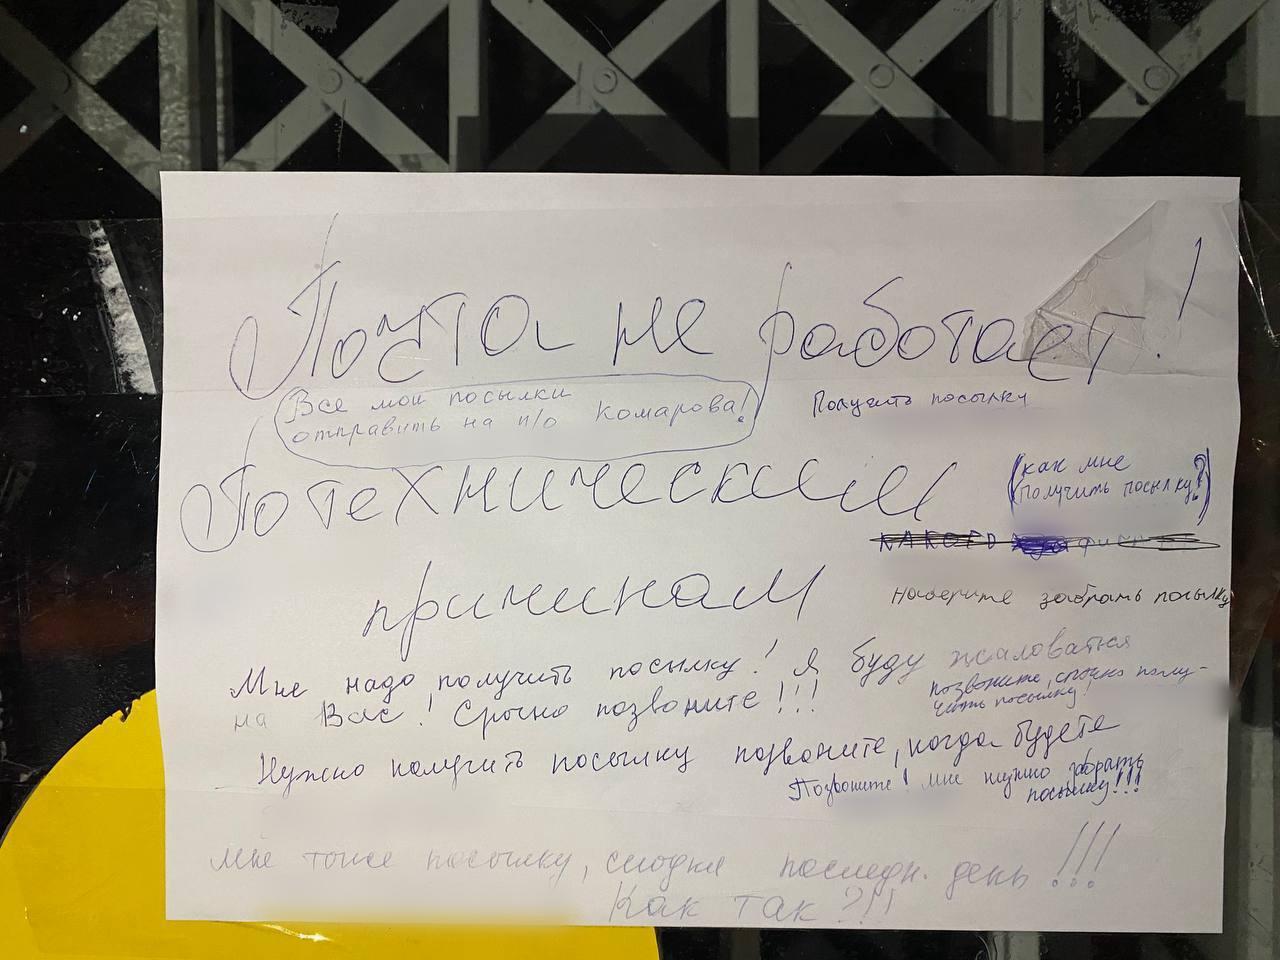 Почта не работает!
Все мои посылки
отправить на п/о Комарова!
Получить посылку
По техническим
(как мне
получить посылку?)
КАКОГО
причинам
забрать посылку
Мне надо получить посылку! Я буду жаловаться
на Вас! Срочно позвоните!!!
позвоните, срочно полу-
чить посылку!
Нужно получить посылку позвоните, когда будете
Позвоните! мне нужно забрать
посылку!!!
Мне тоже посылку, сегодня последн. день!!!
Как так?!!